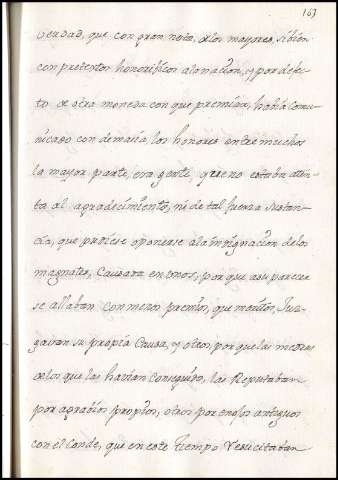 163
verdad, que con gran nota, de los mayores, si bien
con pretextos honorificos a la nacion, y por defec-
to de otra moneda con que premiar, havia comu-
nicado con demasia, los honores entre muchos
la mayor parte, era gente, que no estaba aten-
ta al agradecimiento, ni de tal fuerza sustan-
cia, que pudiese oponerse a la indignacion de los
magnates, Causara en unos, por que a su parecer
se allaban con menos premios, que meritos, Juz-
gavan su propia Causa, y otros, por que las mercedes
de los que las havian Conseguido, las Reputaban
por agravios propios, otros por enojos antiguos
con el Conde, que en este tiempo Resucitaban